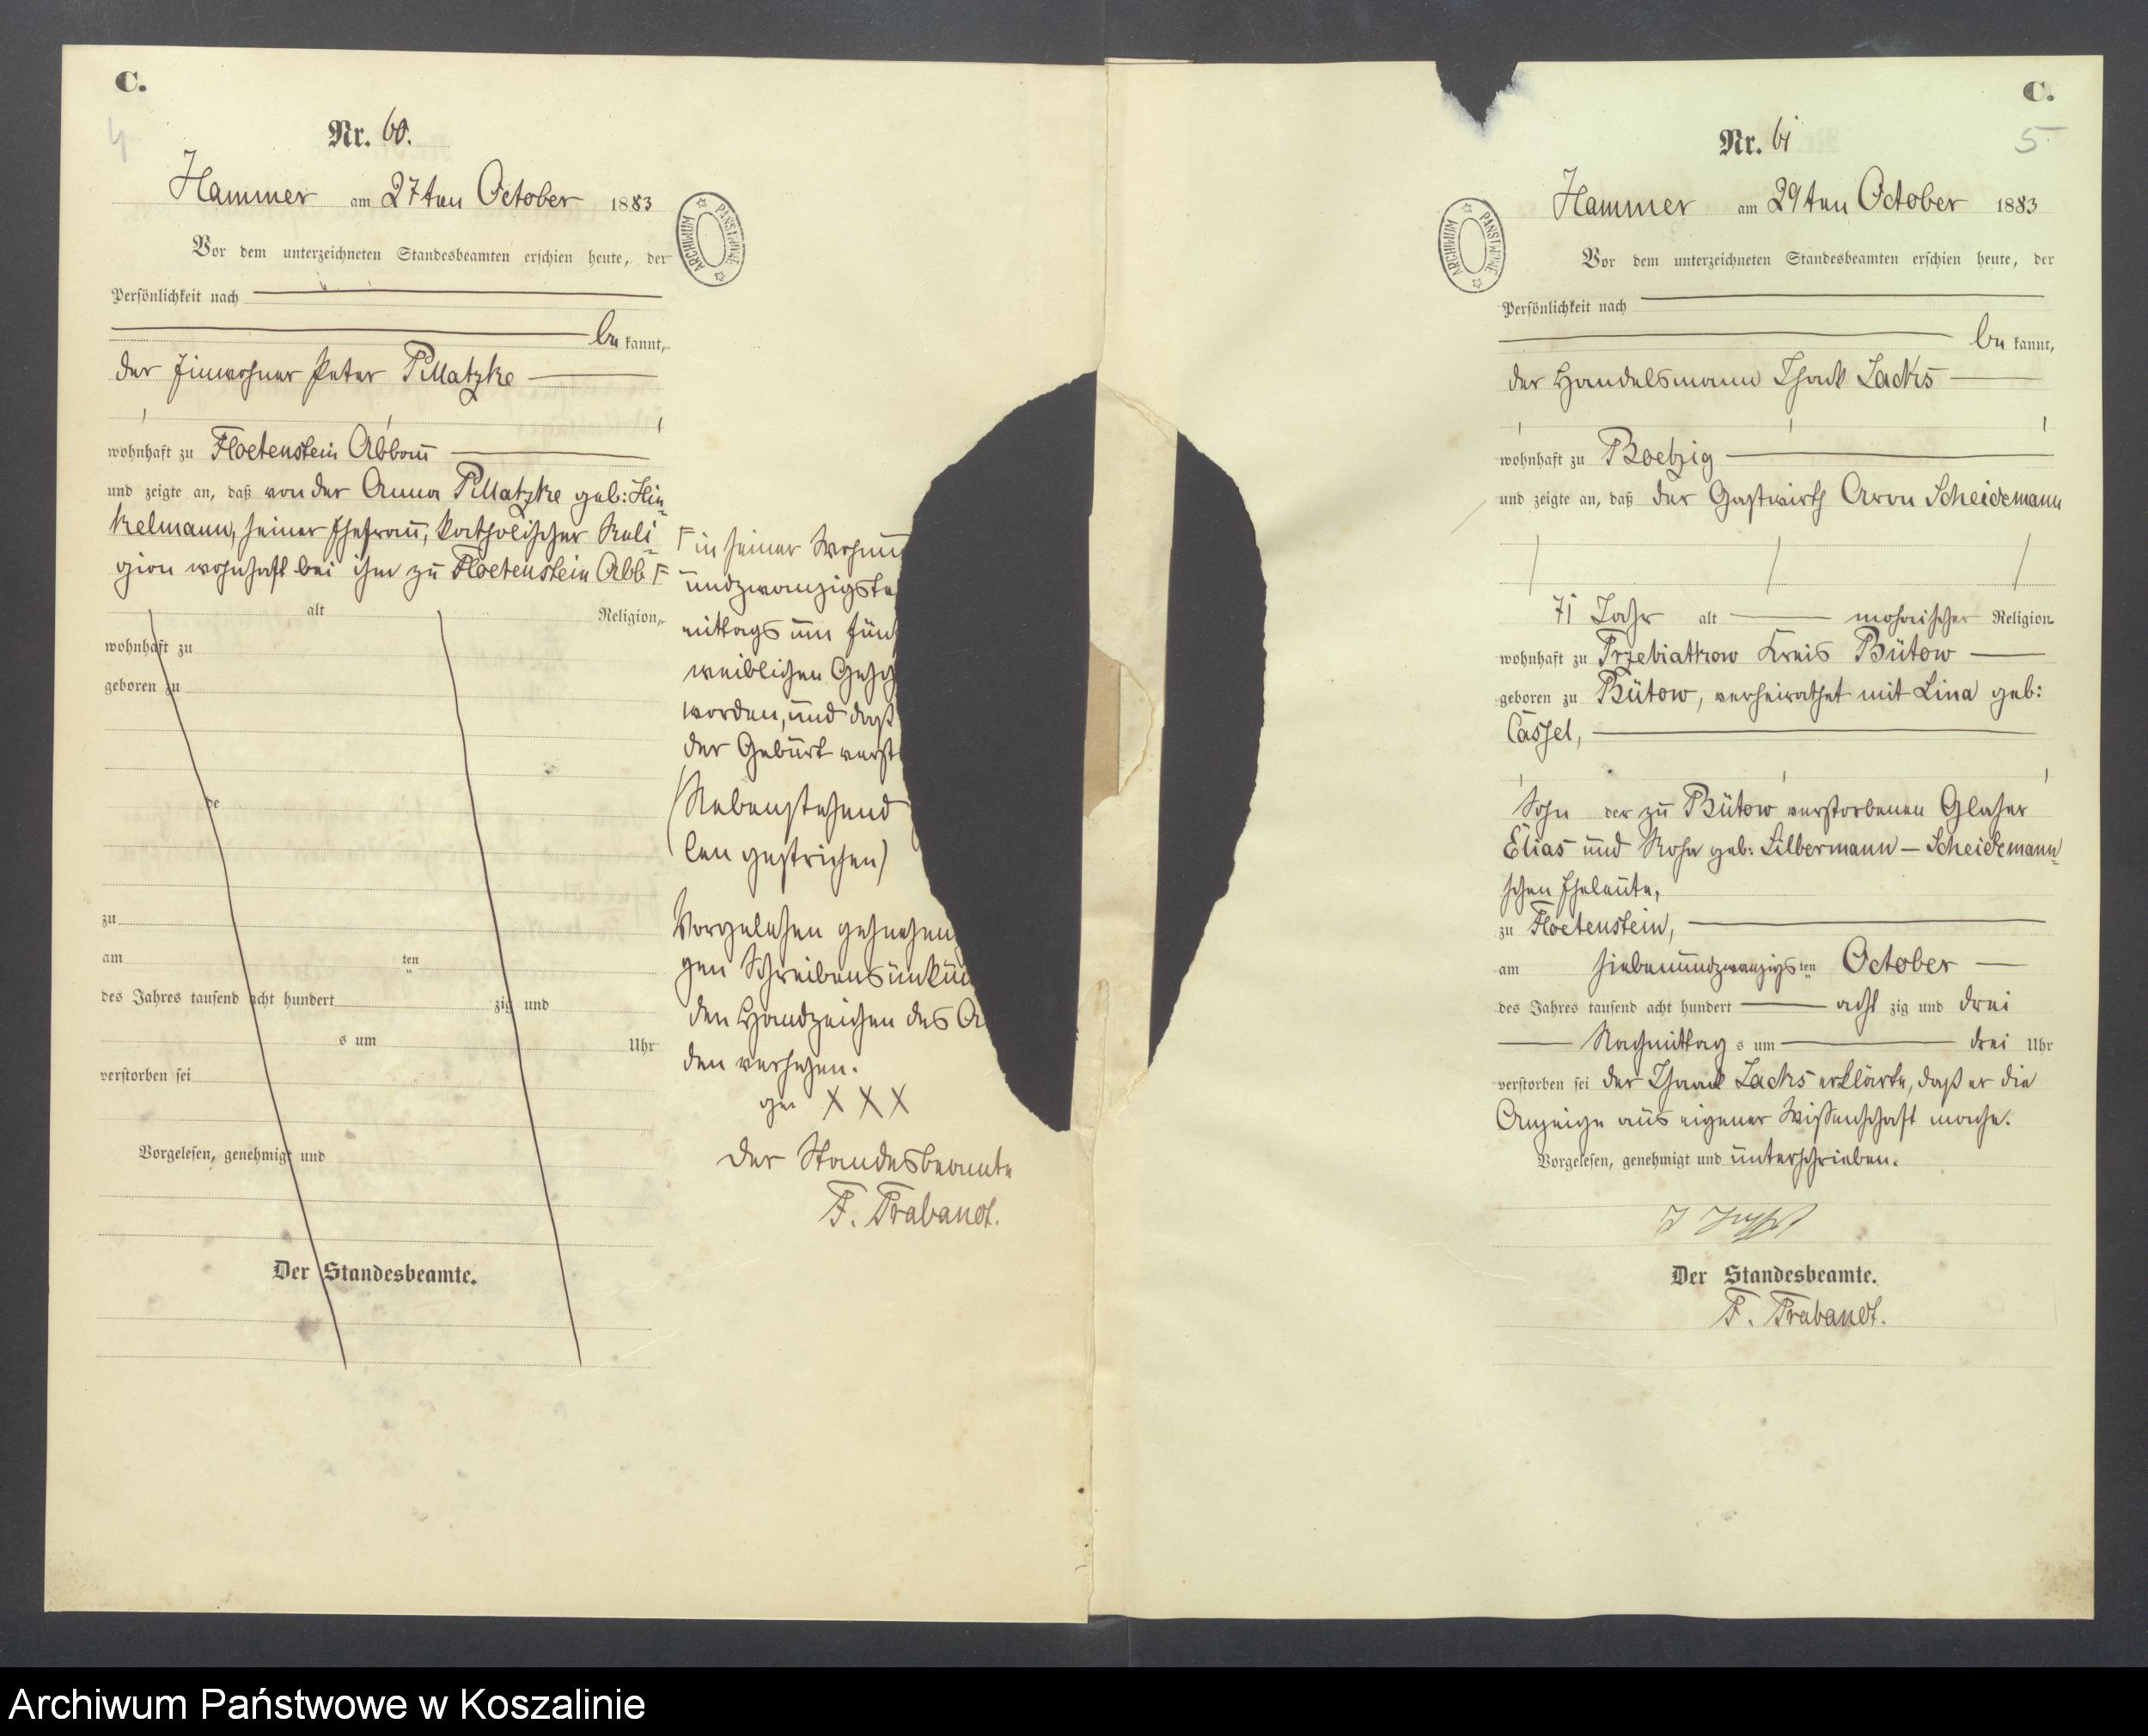 C.
4
Nr. 60.
Hammer am 27ten October 1883
Vor dem unterzeichneten Standesbeamten erschien heute, der
Persönlichkeit nach
be kannt,
der Einwohner Peter Pillatzke
wohnhaft zu Floetenstein Abbau
und zeigte an, daß von der Anna Pillatzke geb: Hin-
kelmann, seiner Ehefrau, katholischer Reli-
gion wohnhaft bei ihm zu Floetenstein Abb
alt Religion,
wohnhaft zu
geboren zu
de
zu
am ten
des Jahres tausend acht hundert zig und
s um Uhr
verstorben sei
Vorgelesen, genehmigt und
Der Standesbeamte.
ARCHIWUM PAŃSTWOWE
in seiner Wohnu
undzwanzigste
mittags um fünf
weiblichen Gesch
worden, und daß
der Geburt verst
(Nebenstehend
len gestrichen)
Vorgelesen genehm
gen Schreibensunku
den Handzeichen des A
den versehen.
gez XXX
Der Standesbeamte
F. Trabandt.
C.
5
Nr. 61
Hammer am 29ten October 1883
Vor dem unterzeichneten Standesbeamten erschien heute, der
Persönlichkeit nach
be kannt,
der Handelsmann Isaak Zacks
wohnhaft zu Boetzig
und zeigte an, daß der Gastwirth Aron Scheidemann
71 Jahr alt mosaischer Religion
wohnhaft zu Przebiatkow Kreis Bütow
geboren zu Bütow, verheirathet mit Lina geb:
Cassel,
Sohn der zu Bütow verstorbenen Glaser
Elias und Rosa geb: Silbermann – Scheidemann-
schen Eheleute,
zu Floetenstein,
am siebenundzwanzigsten October
des Jahres tausend acht hundert acht zig und drei
Nachmittag s um drei Uhr
verstorben sei der Isaak Zacks erklärte, daß er die
Anzeige aus eigener Wissenschaft mache.
Vorgelesen, genehmigt und unterschrieben.
Der Standesbeamte.
F. Trabandt.
ARCHIWUM PAŃSTWOWE
Archiwum Państwowe w Koszalinie